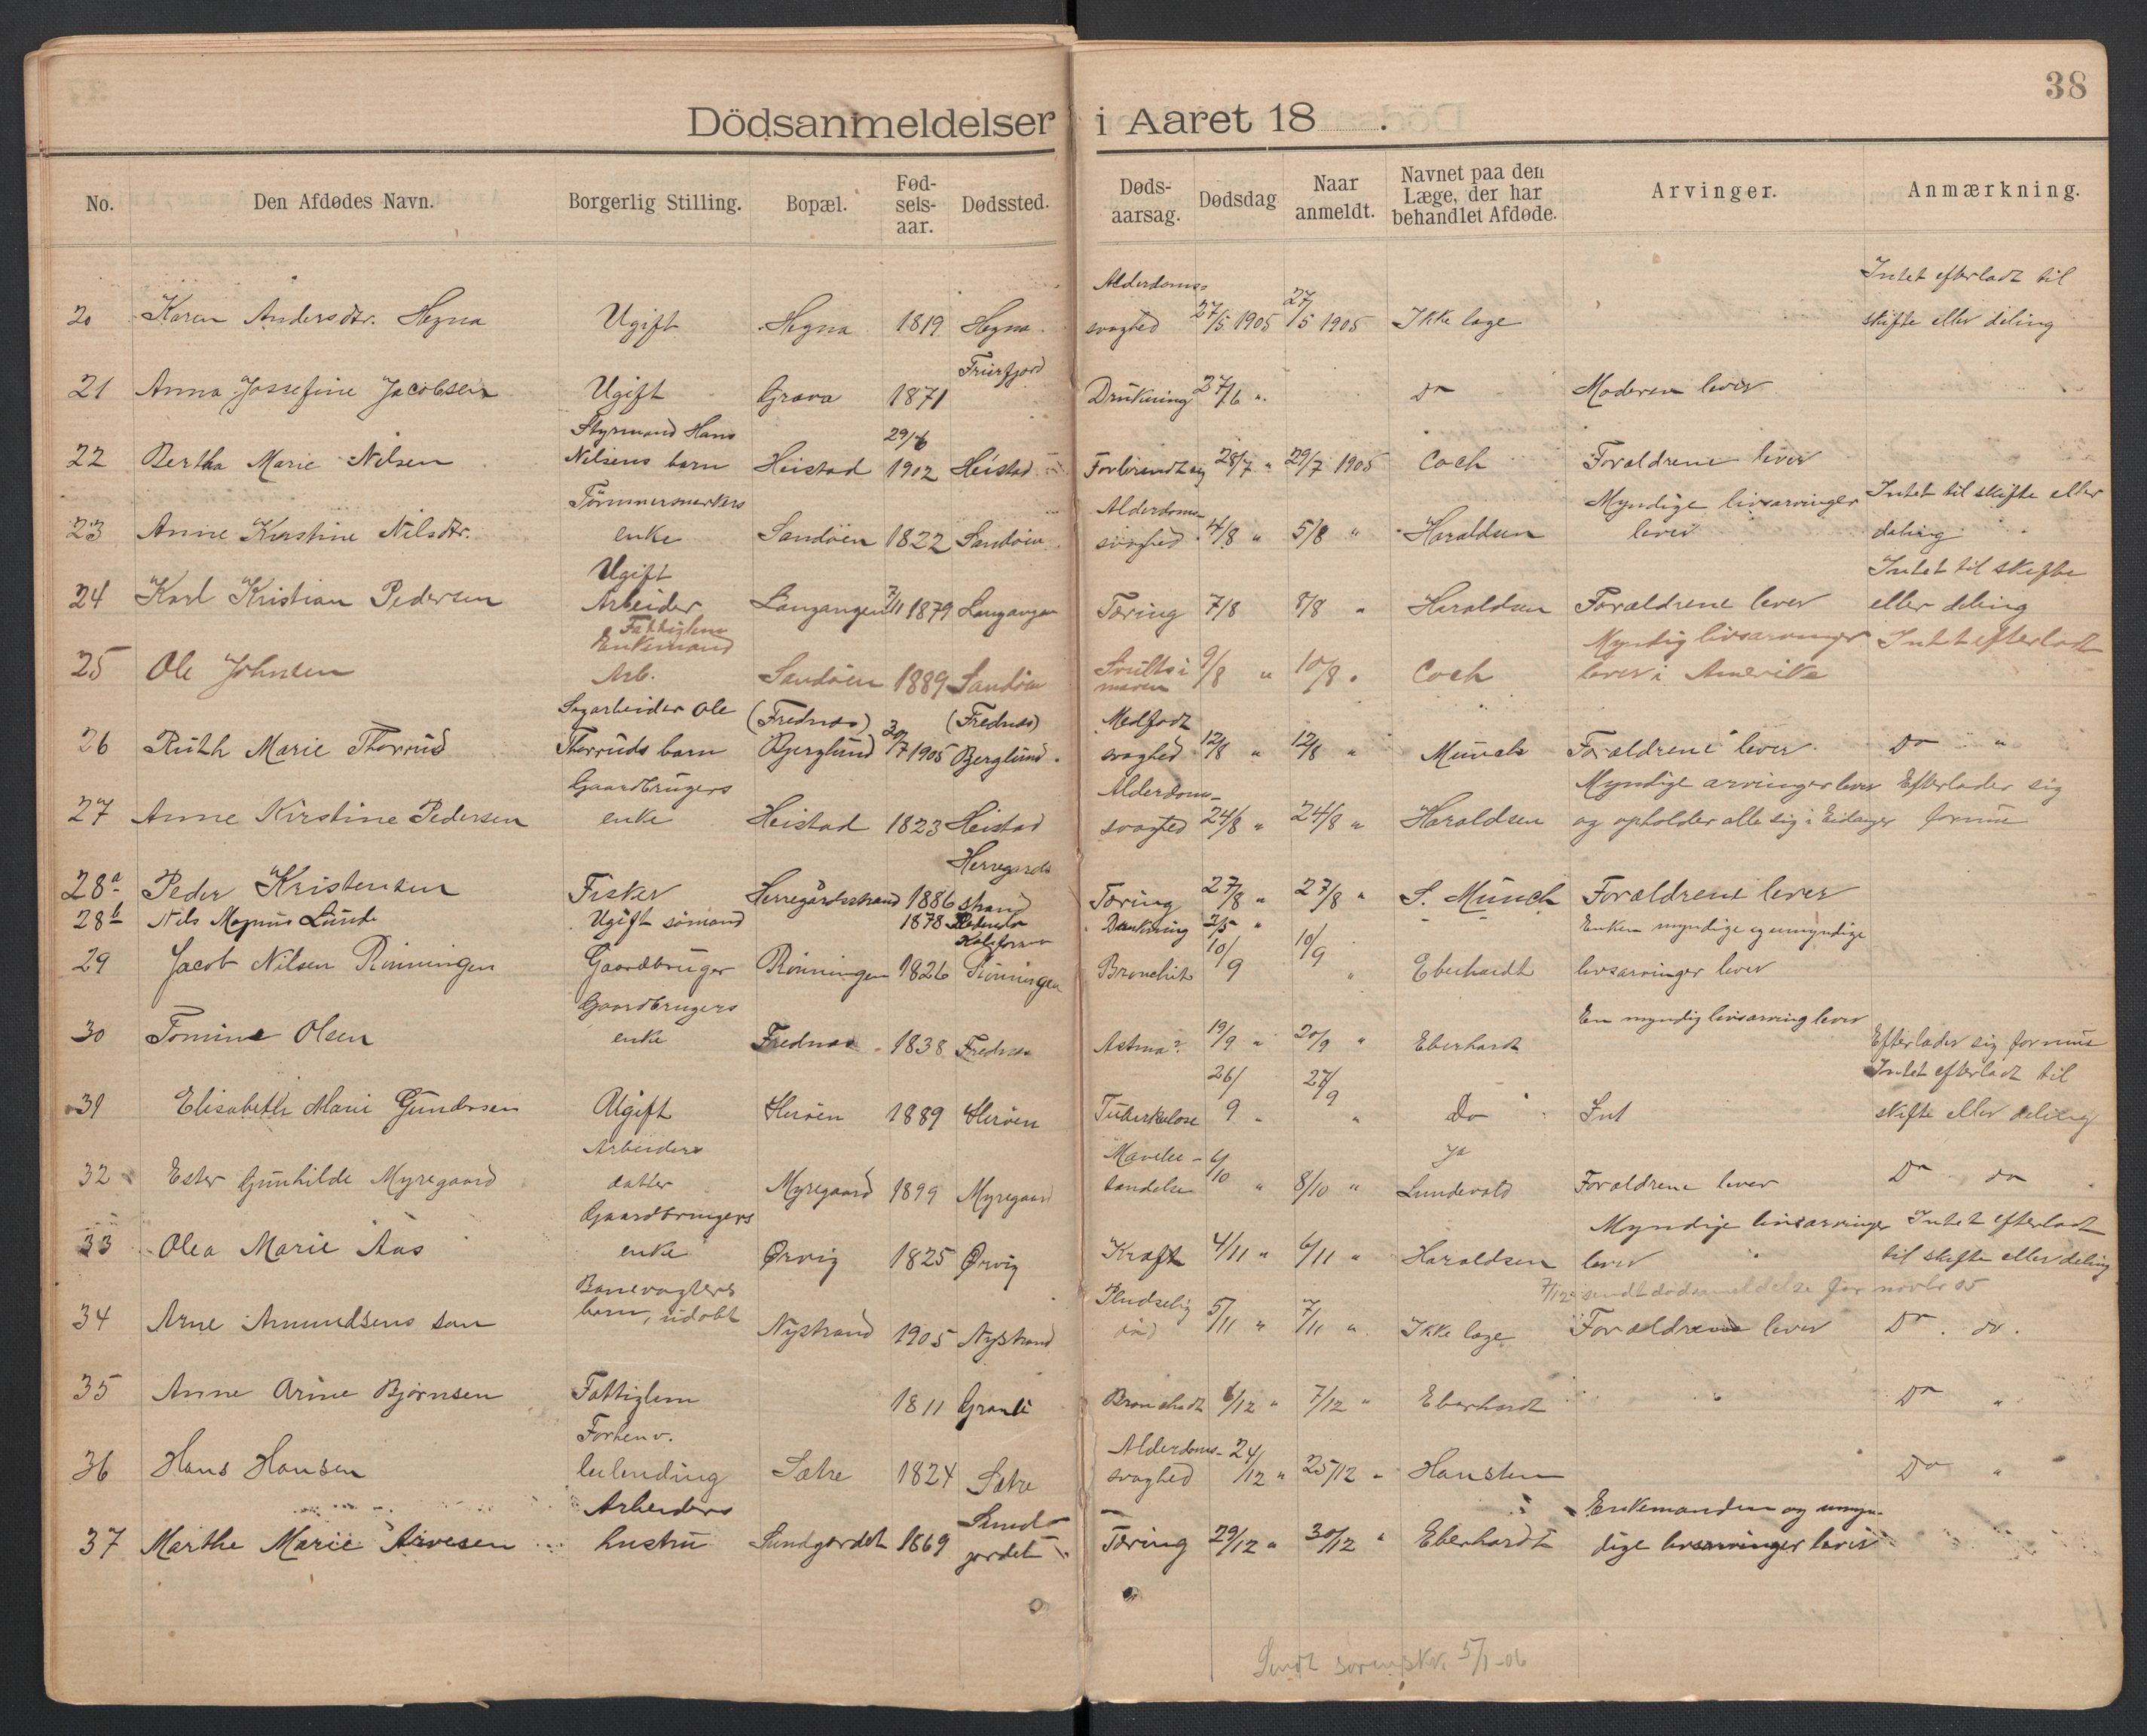 38
Dödsanmeldelser i Aaret 18 .
No. Den Afdødes Navn. Borgerlig Stilling. Bopæl. Fød-sels-aar. Dødssted. Døds-aarsag. Dødsdag Naar anmeldt. Navnet paa den Læge, der har behandlet Afdøde. Arvinger. Anmærkning.
Alderdoms- Intet efterladt til
20 Karen Andersdtr. Hegna Ugift Hegna 1819 Hegna svaghed 27/5 1905 27/5 1905 Ikke læge skifte eller deling
Frierfjord
21 Anna Jossefine Jacobsen Ugift Grava 1871 Drukning 27/6 " Do Moderen lever
Styrmand Hans 29/6
22 Bertha Marie Nilsen Nilsens barn Heistad 1902 Heistad 28/7 " 29/7 1905 Coch Forældrene lever
Tømmermerkers Alderdoms- Myndige livsarvinger Intet til skifte eller
23 Anne Kirstine Nilsdtr. enke Sandøen 1822 Sandøen svaghed 4/8 " 5/8 " Haraldsen lever deling
Ugift Intet til skifte
24 Karl Kristian Pedersen Arbeider Langangen 7/11 1879 Langangen Tæring 7/8 8/8 " Haraldsen Forældrene lever eller deling
Fattiglem
Enkemand Myndig livsarvinger Intet efterladt
25 Ole Johnsen Arb. Sandøen 1889 Sandøen Svulst i maven 9/8 " 10/8 " Coch lever i Amerika
Sagarbeider Ole (Frednæs) 30/7 (Frednæs) Medfødt
26 Ruth Marie Thorrud Thorruds barn Bjerglund 1905 Bjerglund svaghed 12/8 " 12/8 " Münch Forældrene lever Do "
Gaardbrugers Alderdoms- Myndige arvinger lever Efterlader sig
27 Anne Kirstine Pedersen enke Heistad 1823 Heistad svaghed 24/8 " 24/8 " Haraldsen og opholder alle sig i Eidanger formue
Herregards
28a Peder Kristensen Fisker Herregårdsstrand 1886 strand Tæring 27/8 " 27/8 " S. Münch Forældrene lever
28b Nils Magnus Lunde Ugift sømand 1878 Drukning 2/5 " Enken myndige og umyndige
29 Jacob Nilsen Rönningen Gaardbruger Rönningen 1826 Rönningen Bronchit 10/9 10/9 " Eberhardt livsarvinger lever
Gaardbrugers En myndig livsarving lever
30 Tomine Olsen enke Frednæs 1838 Frednæs Astma? 19/9 " 20/9 " Eberhardt Efterlader sig formue
Intet efterladt til
31 Elisabeth Marie Gundersen Ugift Herøen 1889 Herøen Tuberkulose 26/9 " 27/9 " do skifte eller deling
Arbeiders Mavebe- ja
32 Ester Gunhilde Myregaard datter Myregaard 1899 Myregaard tændelse 6/10 " 8/10 " Lundevold Forældrene lever Do do
Gaardbrugers Myndige livsarvinger Intet efterladt
33 Olea Marie Aas enke Ørvig 1825 Ørvig Kræft 4/11 " 6/11 " Haraldsen lever til skifte eller deling
7/12 sendt dødsmeldelse for novbr 05
Banevogters Pludselig
34 Arne Amundsens søn barn, udøbt Nystrand 1905 Nystrand død 5/11 " 7/11 " Ikke læge Forældrene lever Do. do.
35 Anne Arine Bjørnsen Fattiglem 1811 Granli 6/12 " 7/12 " Eberhardt Do "
Forhenv. Alderdoms-
36 Hans Hansen leilending Sætre 1824 Sætre svaghed 24/12 " 25/12 " Hansten Do "
Arbeiders Sund- Enkemanden og umyn-
37 Marthe Marie Arvesen hustru Sundgordet 1869 gordet Tæring 29/12 " 30/12 " Eberhardt dige livsarvinger lever
Sendt sorenskr. 5/1-06